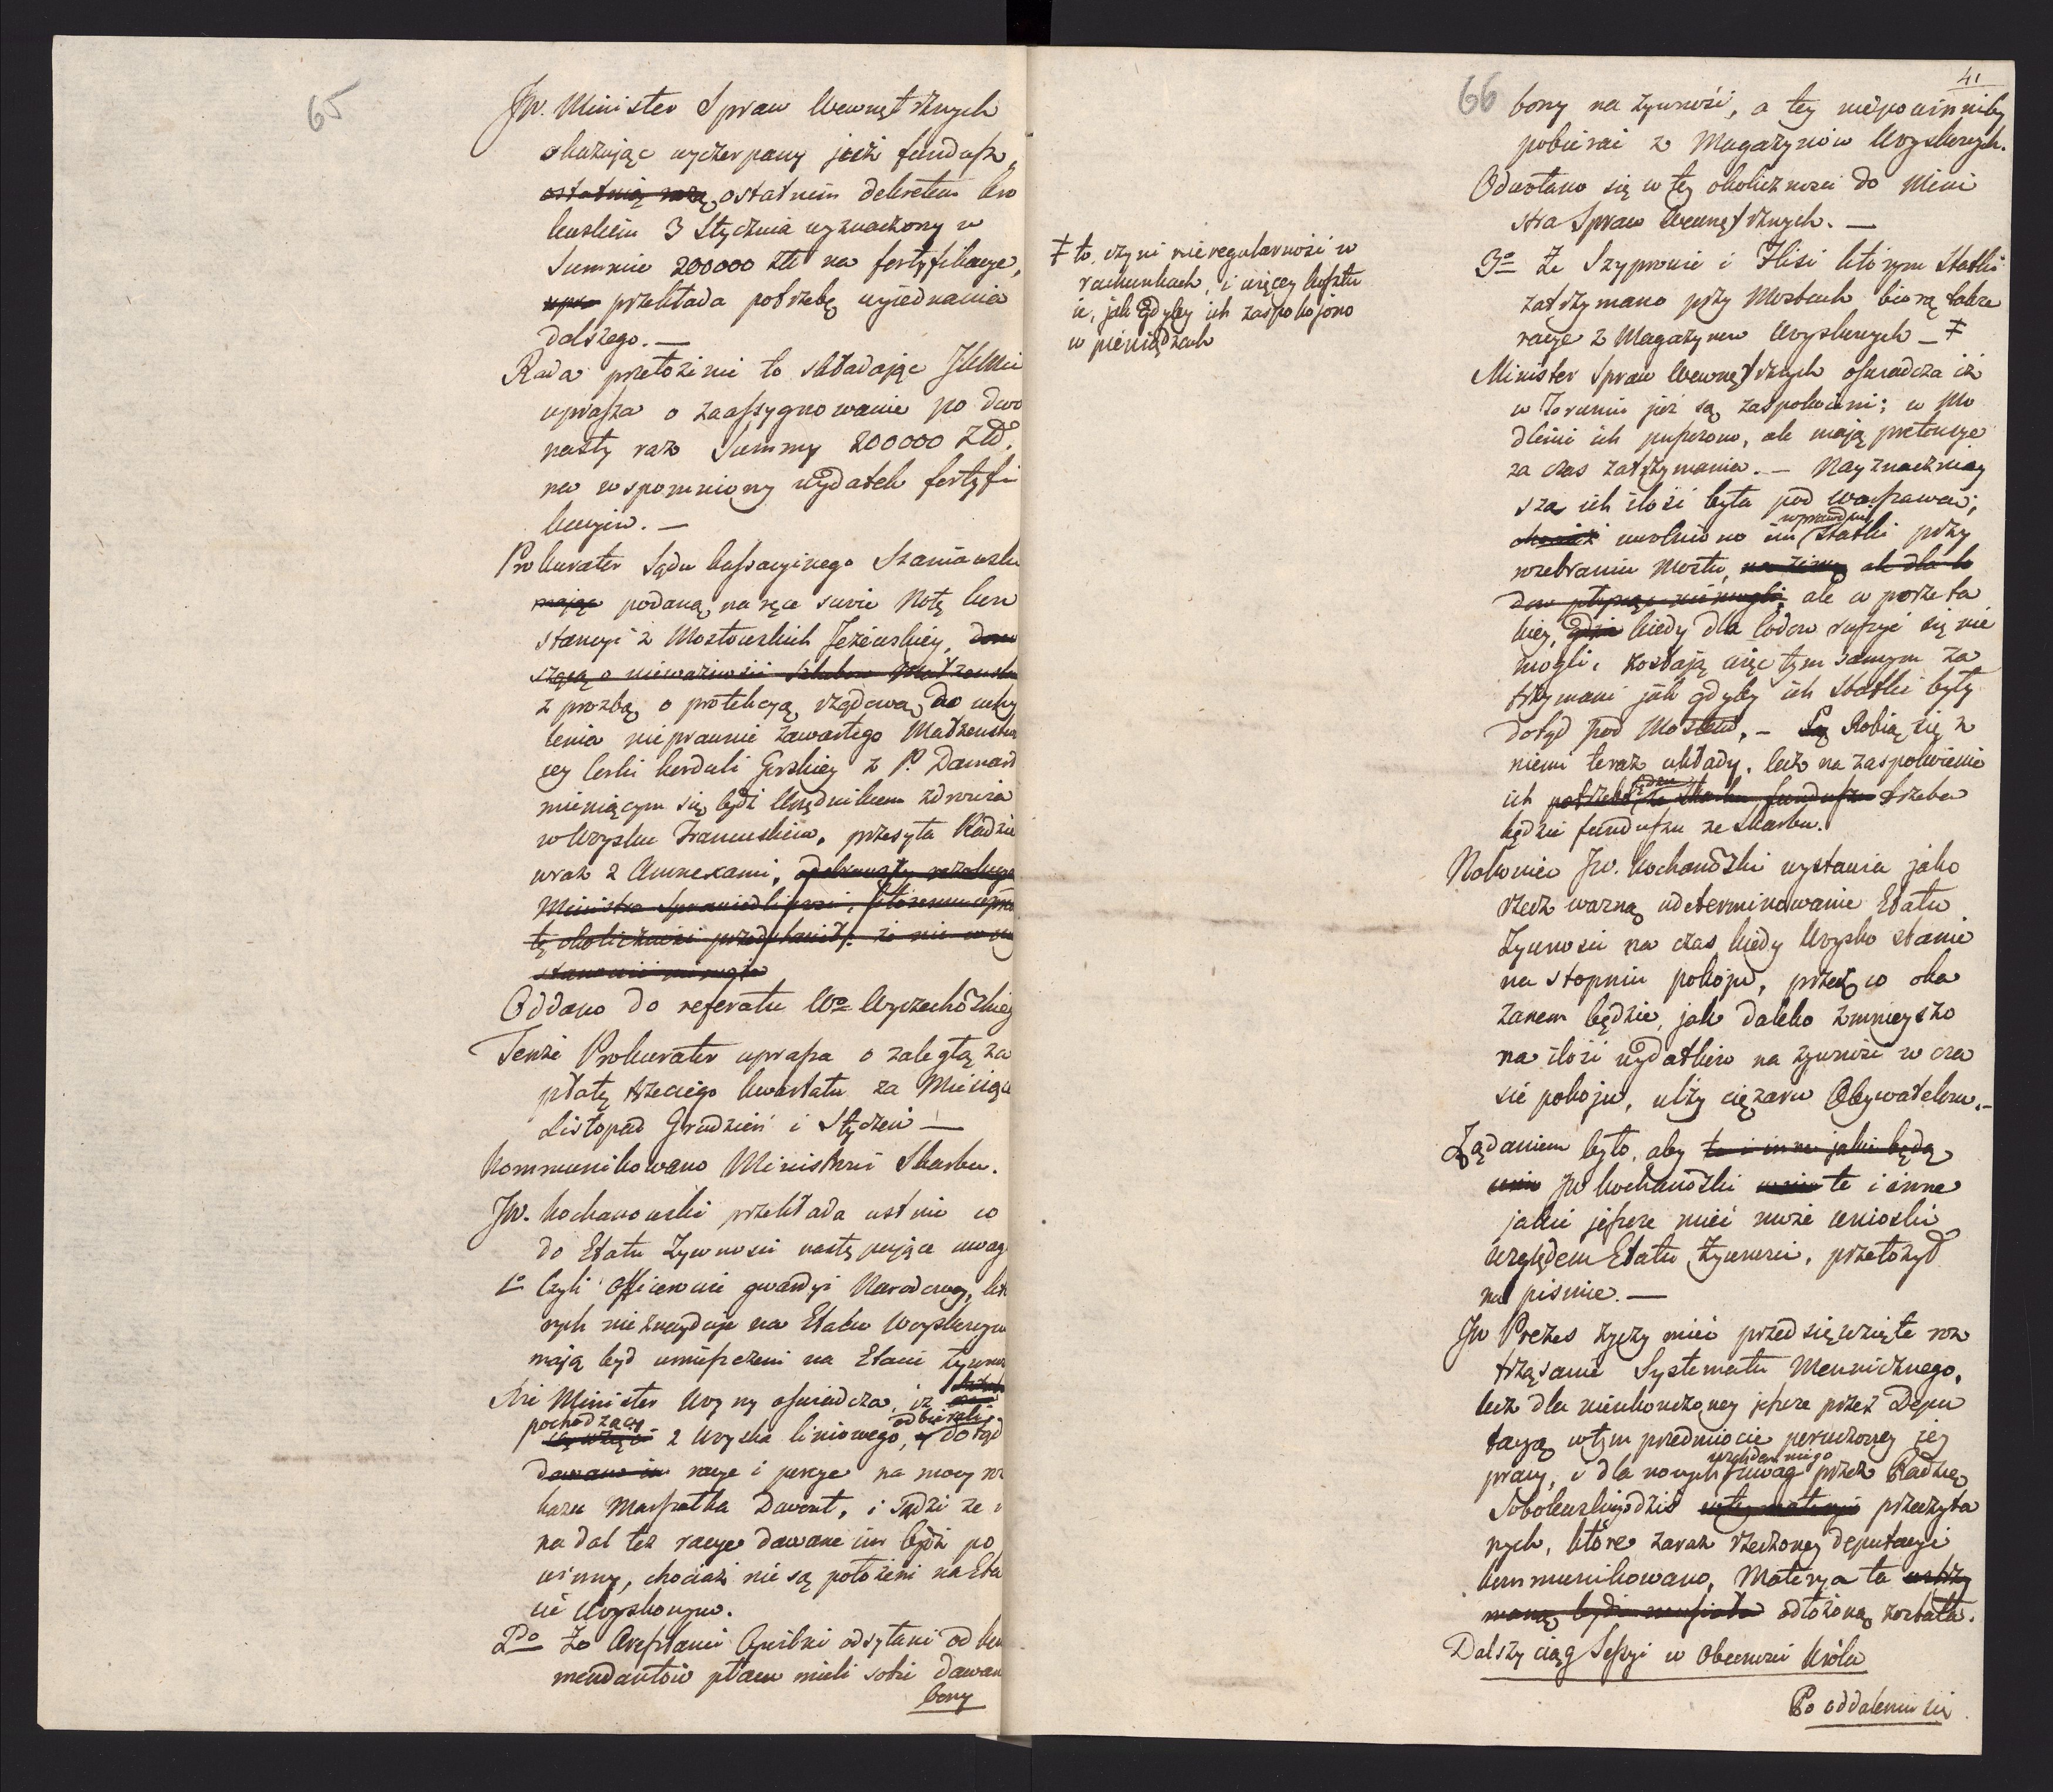 65
JW. Minister Spraw Wewnętrznych
okazując wyczerpany już fundusz,
ostatnią razą ostatnim dekretem kró
lewskim 3 Stycznia wyznaczony w
Summie 200000 złł na fortyfikacye,
przekłada potrzebę wyjednania
dalszego. —
Rada przełożenie to składając JKMci
uprasza o zaassygnowanie po dwu
nasty raz Summy 200000 Złł.
na wspomniony wydatek fortyfi
kacyin. —
Prokurator Sądu kassacyinego Szaniawski
mając podaną na ręce swoie Notę kon
stancyi z Mostowskich Jezierskiey,
szącą o nieważności ślubu Małżeńsk
z prozbą o protekcyą rządową do uchy
lenia nieprawnie zawartego Małżeństwa
cey Corki Korduli Gorskiey z P. Damard
mieniącym się bydź Urzędnikiem zdrowia
w Woysku Francuskim, przesyła Radzie
wraz z Annexami, odebrawszy rezolucyę
Ministra Sprawiedliwości, któremu
tę okoliczność przedstawił: że nic w
stanowić nie może
Oddano do referatu Wo Wyczechowskiey
Tenże Prokurator uprasza o zaległą za
płatę trzeciego kwartału za Miesiące
Listopad Grudzień i Styczeń —
Kommunikowano Ministrowi Skarbu.
JW. Kochanowski przekłada ustnie co
do Etatu Żywności następujące uwag
1o Czyli Officerowie gwardyi Narodowey, któ
rych nieznayduje na Etacie Woyskowym
mają bydź umieszczeni na Etacie żywno
ści Minister Woyny oświadcza, iż
pochodzący odbierali
są wzięci z Woyska liniowego, dotąd
dawano im racye i porcye na mocy roz
kazu Marszałka Davout, i sądzi że i
nadal też racye dawane im bydź po
winny, chociaż nie są położeni na Eta
cie Woyskowym.
2do Że Aresztanci Cywilni odsyłani od kom
mendantów placu mieli sobie dawan
bony
41
66
bony na żywność, a tey niepowinniby
pobierać z Magazynów Woyskowych.
Odwołano się w tey okoliczności do Mini
stra Spraw Wewnętrznych. —
3o Że Szyprowie i Flisi którym Statki
zatrzymano przy Mostach biorą także
racye z Magazynów Woyskowych — ‡
‡ to, czyni nieregularność w
rachunkach, i więcey kosztu
ie, jak gdyby ich zaspokojono
w pieniądzach
Minister Spraw Wewnętrznych oświadcza iż
w Toruniu już są zaspokoieni; w Mo
dlinie ich puszczono, ale mają pretensye
za czas zatrzymania. — Nayznaczniey
sza ich ilość była pod Warszawą;
wprawdzie
chociaż uwolniono im Statki przy
rozebraniu Mostu, na zimę ale dla lo
dów płynąć nie mogli, ale w porze ta
kiey, gdzie kiedy dla lodów ruszyć się nie
mogli, zostają więc tym samym za
trzymani jak gdyby ich statki były
dotąd pod Mostem. — Są Robią się z
niemi teraz układy, lecz na zaspokoienie
ich potrzeba będzie ze Skarbu funduszu trzeba
będzie funduszu ze Skarbu.
Nakoniec JW. Kochanowski wystawia jako
rzecz ważną udeterminowanie Etatu
Żywności na czas kiedy Woysko stanie
na stopniu pokoju, przez co oka
zanem będzie, jak daleko zmnieyszo
na ilość wydatków na żywność w cza
sie pokoju, ulży ciężaru Obywatelom. —
Żądaniem było, aby te i inne jakie będą
JW Kochanowski te i inne
jakie jeszcze mieć może wnioski
względem Etatu Żywności, przełożył
na piśmie. —
JW Prezes życzy mieć przedsięwzięte roz
trząsanie Systematu Mennicznego,
lecz dla nieukończoney jeszcze przez Depu
tacyą w tym przedmiocie poruczoney jey
względem niego
pracy, i dla nowych uwag przez Radzcę
Sobolewskiego dziś w tey materyi przeczyta
nych, które zaraz rzeczoney deputacyi
kommunikowano, Materya ta wstrzy
maną bydź musiała odłożoną została.
Dalszy ciąg Sessyi w Obecności Króla
Po oddaleniu się